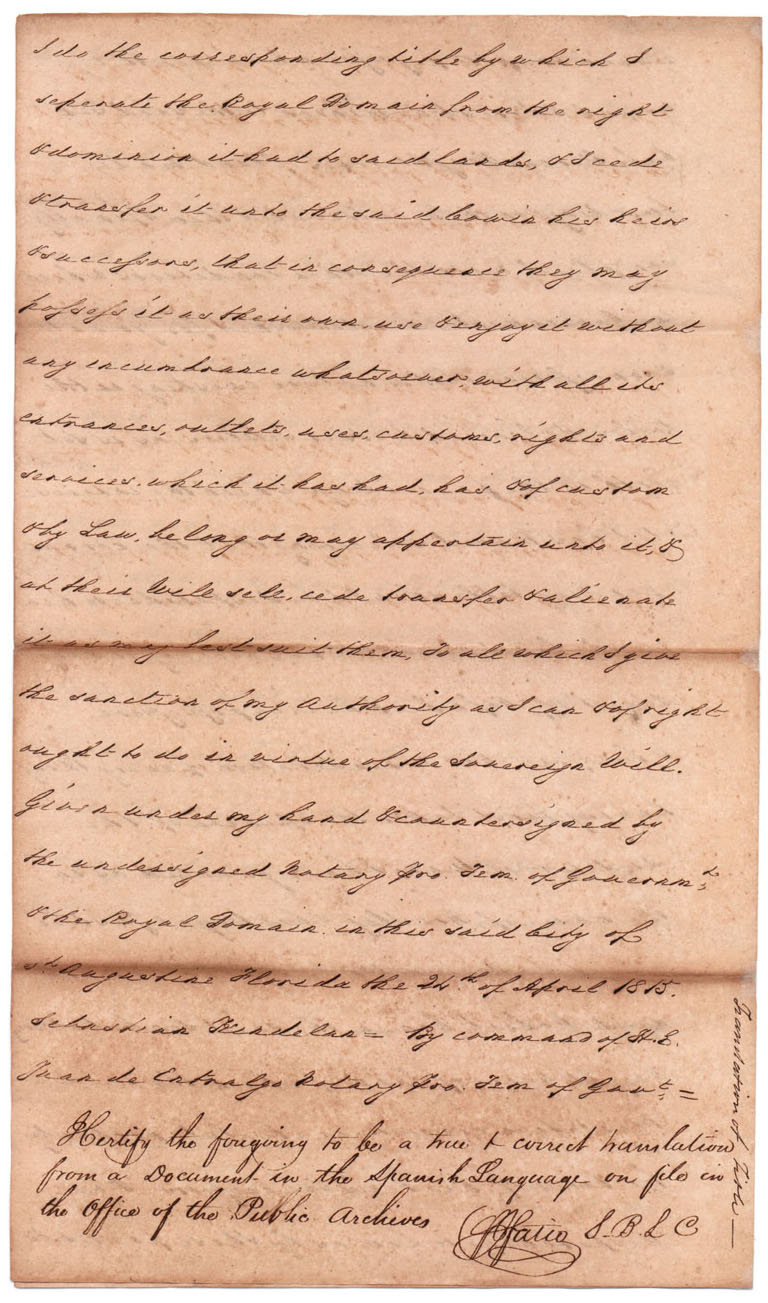 I do the corresponding title by which I
seperate the Royal Domain from the right
& dominion it had to said lands, & I cede
& transfer it unto the said Cowin his heirs
& successors, that in consequence they may
possess it as their own, use & enjoy it without
any incumbrance whatsoever, with all its
entrances, outlets, uses, customs, rights and
services which it has had, has & of custom
& by Law, belong or may appertain unto it, &
at their Will sell, cede transfer & alienate
it as may best suit them, to all which I give
the sanction of my Authority as I can & of right
ought to do in virtue of the Sovereign Will.
Given under my hand & countersigned by
the undersigned Notary Pro. Tem. of Governmt.
& the Royal Domain in this said City of
St Augustine Florida the 24th of April 1815.
Sebastian Kindelan = By command of H.E.
Juan de Entralgo Notary Pro. Tem of Govt. =
I Certify the forgoing to be a true & correct translation
from a Document in the Spanish Language on file in
the Office of the Public Archives
Fatio S. B. L C
Translation of Title —